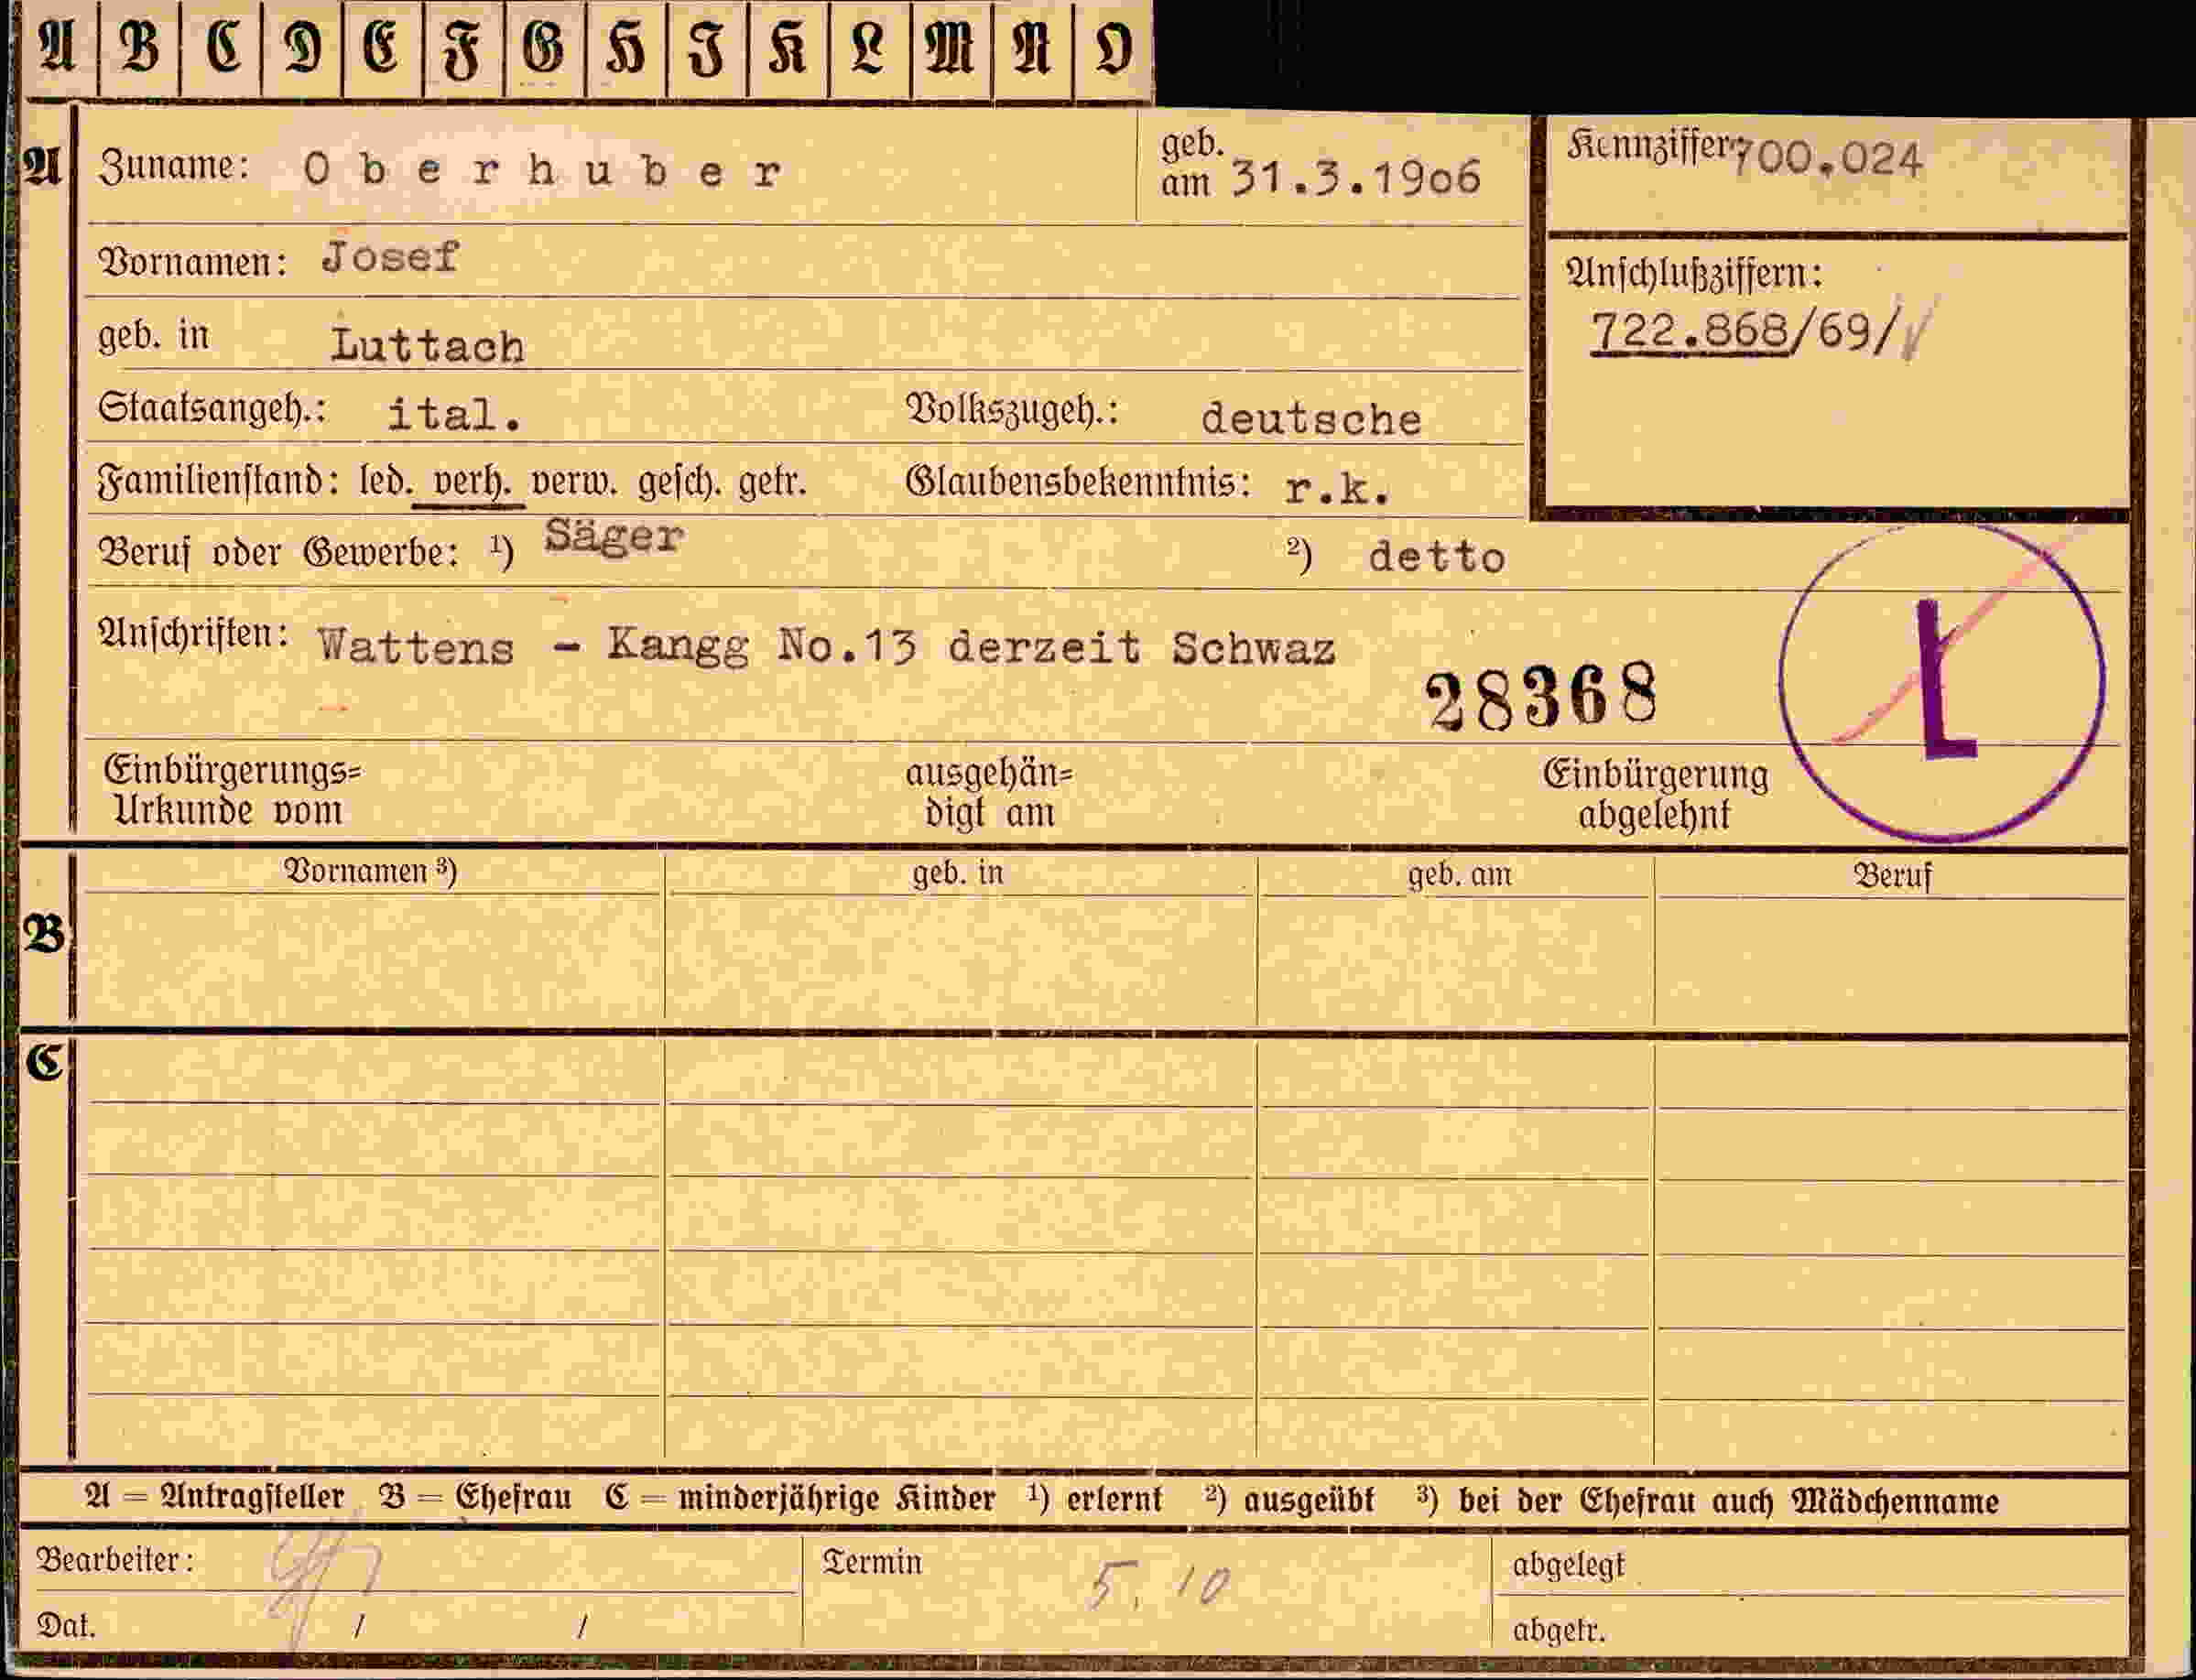 A B C D E F G H I K L M N O
A Zuname: Oberhuber geb. am 31.3.1906 Kennziffer: 700.024
Vornamen: Josef
Anschlußziffern:
geb. in Luttach 722.868/69/
Staatsangeh.: ital. Volkszugeh.: deutsche
Familienstand: led. verh. verw. gesch. getr. Glaubensbekenntnis: r.k.
Beruf oder Gewerbe: 1) Säger 2) detto
Anschriften: Wattens - Kangg No.13 derzeit Schwaz
28368 L
Einbürgerungs= ausgehän= Einbürgerung
Urkunde vom digt am abgelehnt
Vornamen 3) geb. in geb. am Beruf
B
C
A = Antragsteller B = Ehefrau C = minderjährige Kinder 1) erlernt 2) ausgeübt 3) bei der Ehefrau auch Mädchenname
Bearbeiter: Termin 5. 10 abgelegt
Dat. / / abgetr.